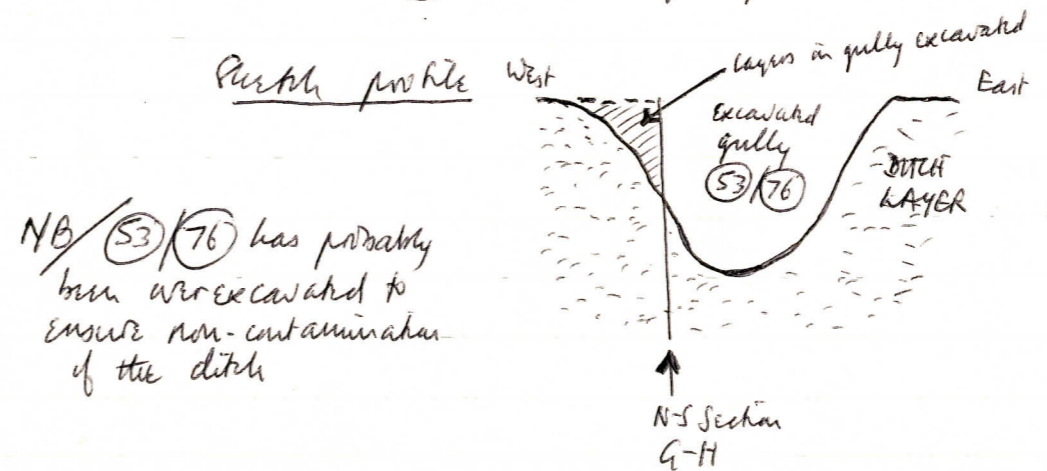 Sketch profile
West
layers in gully excavated
East
Excavated
gully
53/76
DITCH
LAYER
NB/ 53/76 has probably
been overexcavated to
ensure non-contamination
of the ditch
N-S Section
G-H